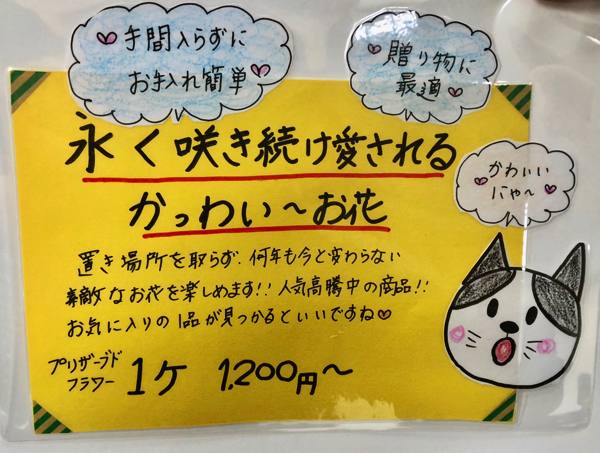 手間入らずに
お手入れ簡単
贈り物に
最適
永く咲き続け愛される
かっわい～お花
かわいい
にゃ～
置き場所を取らず、何年も今と変わらない
素敵なお花を楽しめます!! 人気高騰中の商品!!
お気に入りの1品が見つかるといいですね♡
プリザーブド
フラワー
1ケ 1,200円～